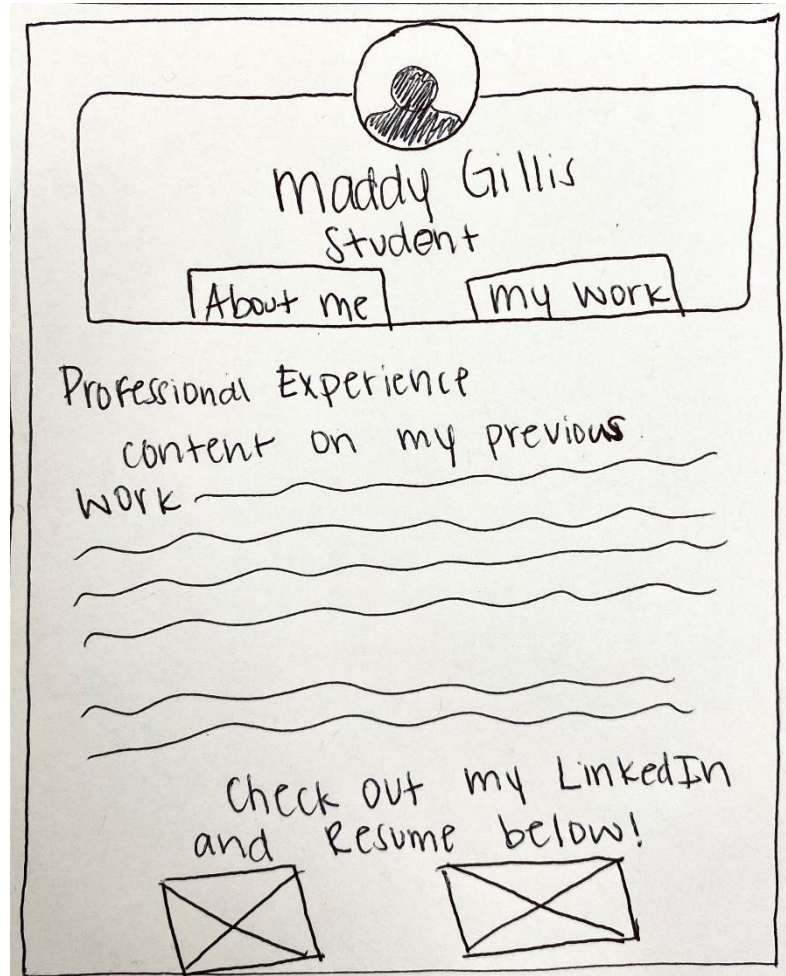 Maddy Gillis
Student
About me
My work
Professional Experience
content on my previous
work
Check out my LinkedIn
and Resume below!